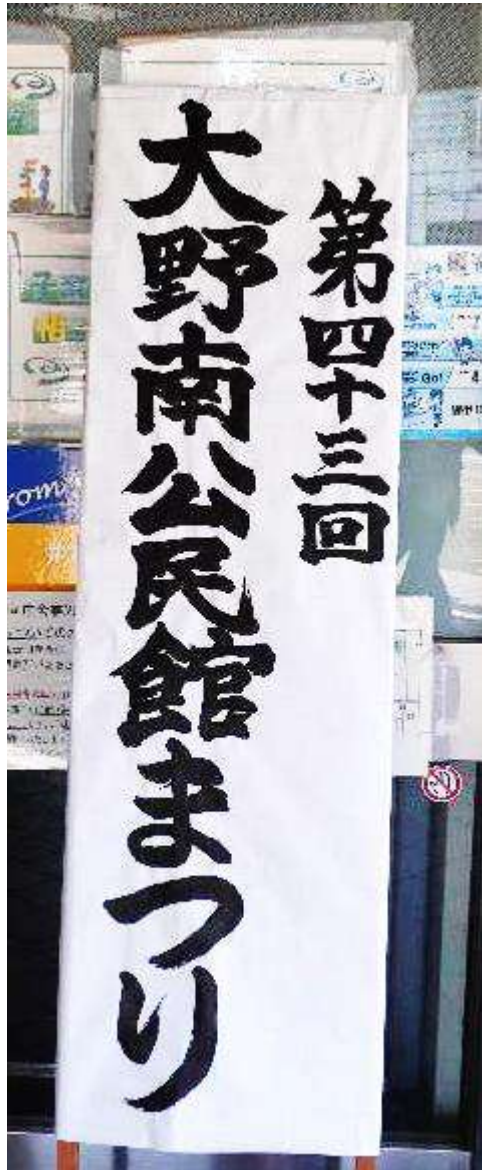 第四十三回
大野南公民館まつり
Go!